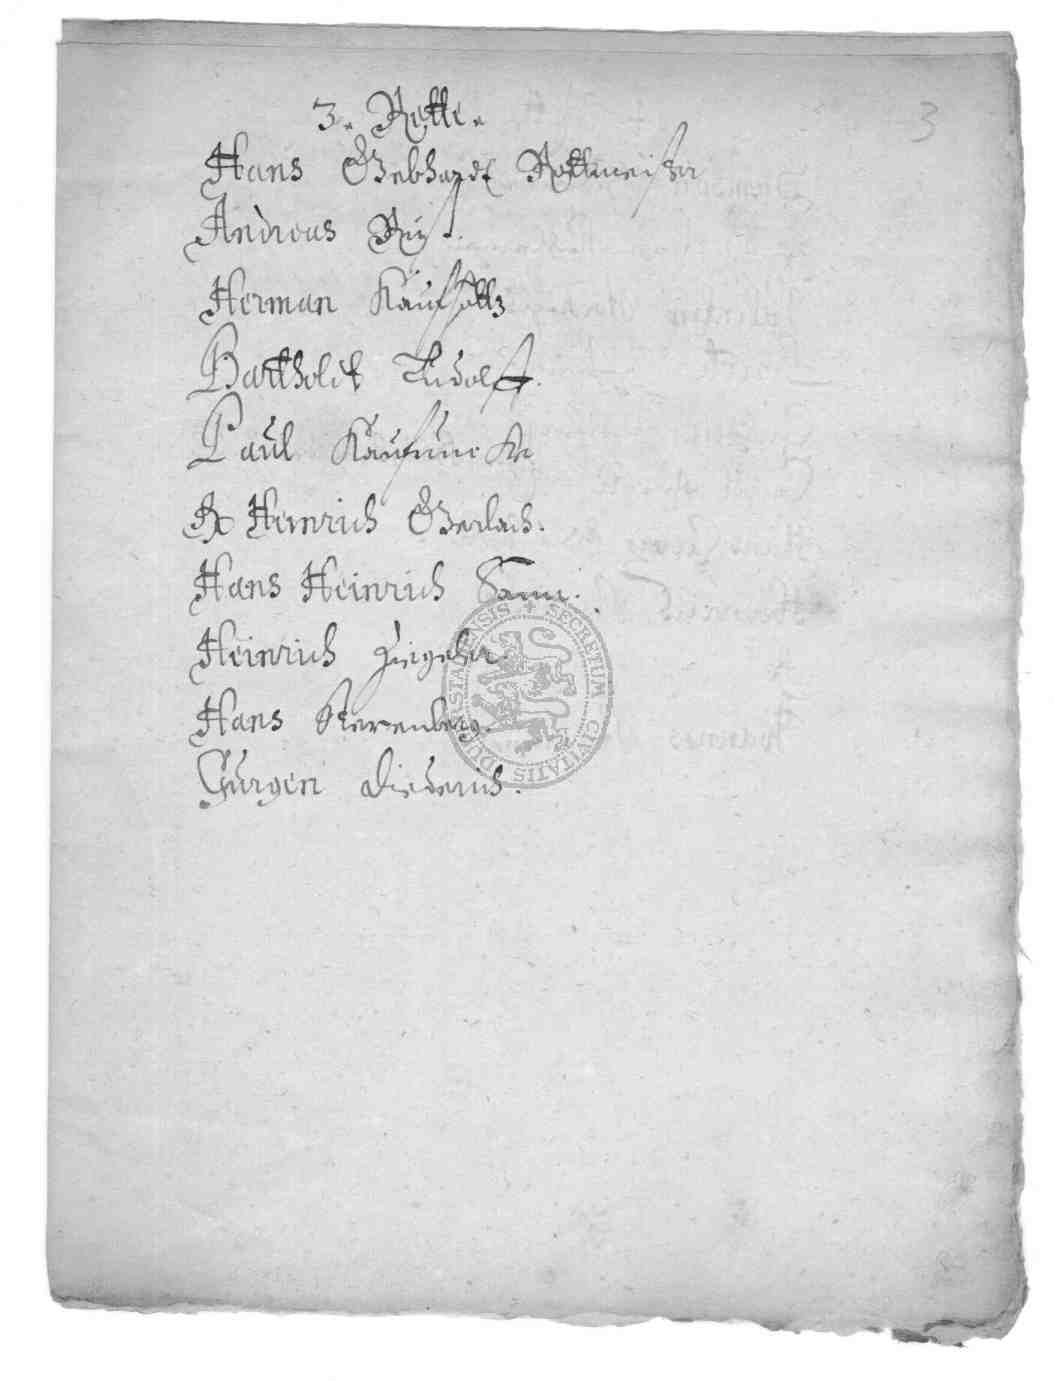 3. Rotte.
3
Hans Gebhardt Rottmeister
Andreas Rust.
Herman Kaufholtz
Bartholdt Rudolff.
Paul Kaufunck
Heinrich Gerlach.
Hans Heinrich
Heinrich Ziegeler.
Hans Berenberg.
Jurgen Diederich.
SECRETUM CIVITATIS DUDERSTATENSIS